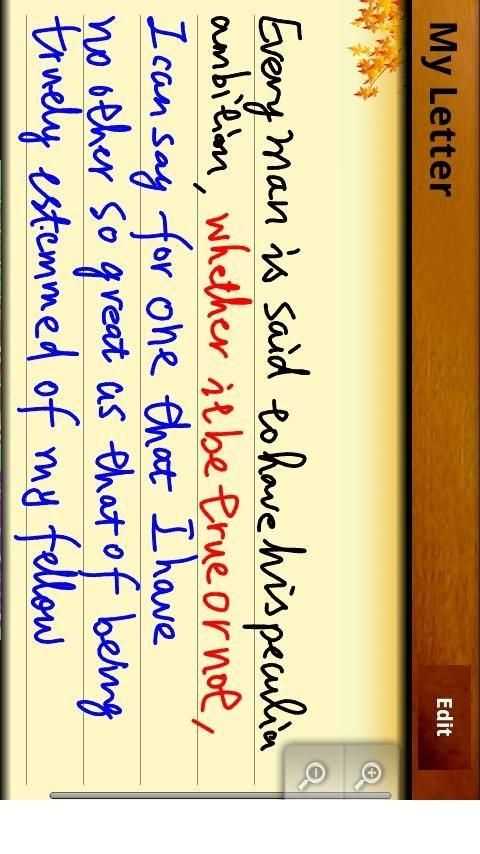 My Letter
Edit
Every man is said to have his peculia
ambition, whether it be true or not,
I can say for one that I have
no other so great as that of being
truely estemmed of my fellow